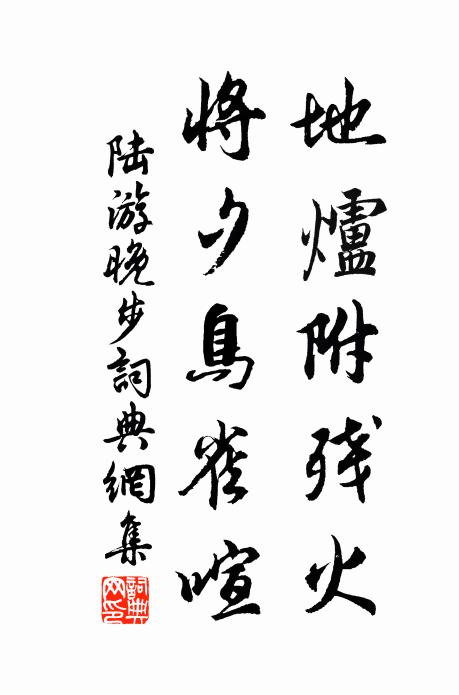 地爐附残火
將夕鳥雀喧
陆游晚步詞典網集
詞典網印